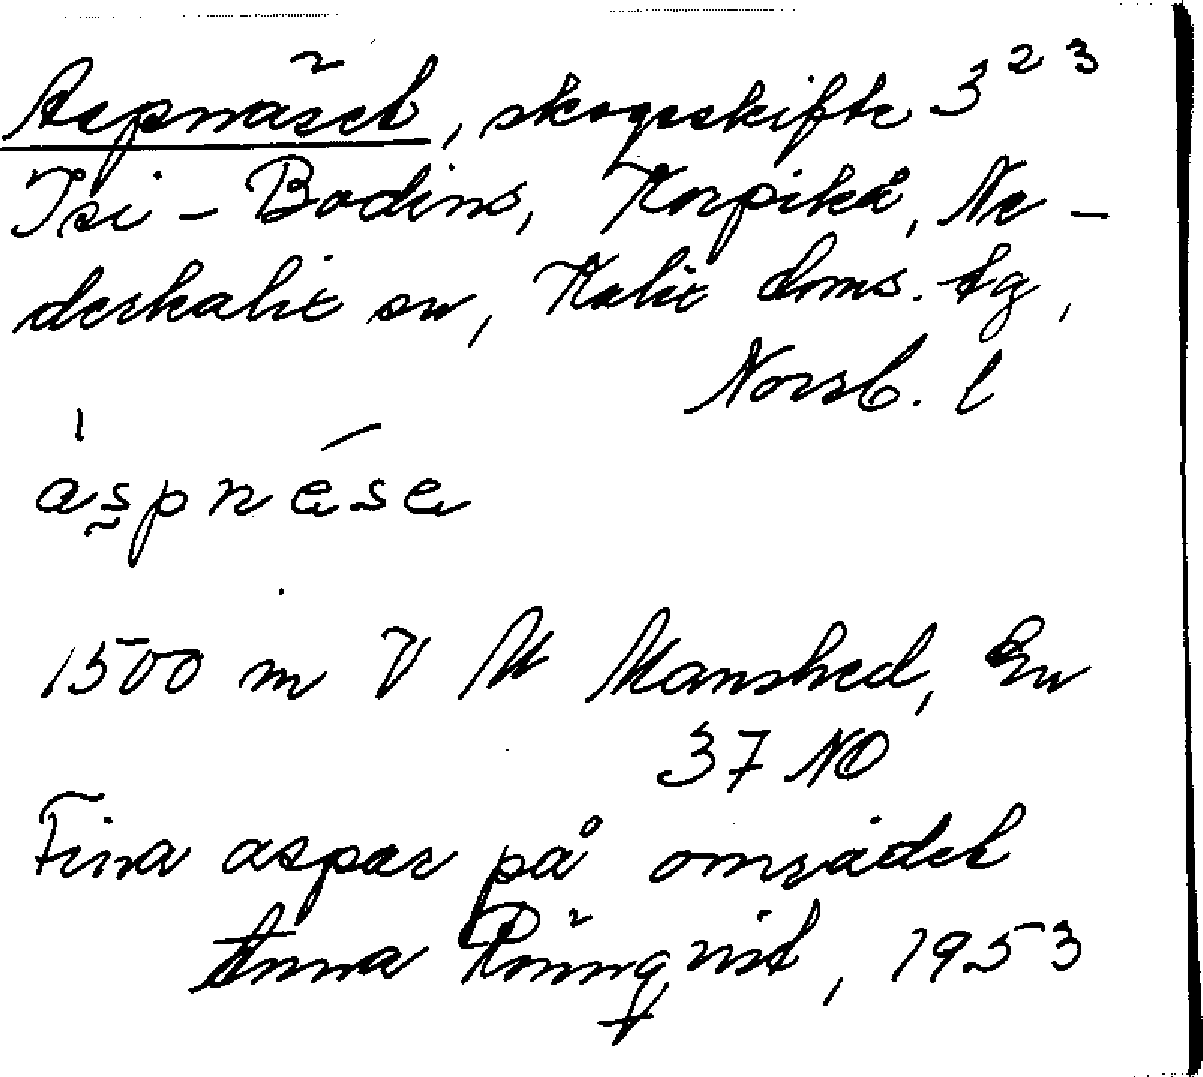 Aspnäset, skogsskifte 3 2 3
Isi - Bodins, Korpikå, Ne -
derkalix sn, Kalix doms. tg,
Norrb. l
áspnése
1500 m V M Månshed, En
37 NO
Fina aspar på området
Anna Rönnqvist, 1953